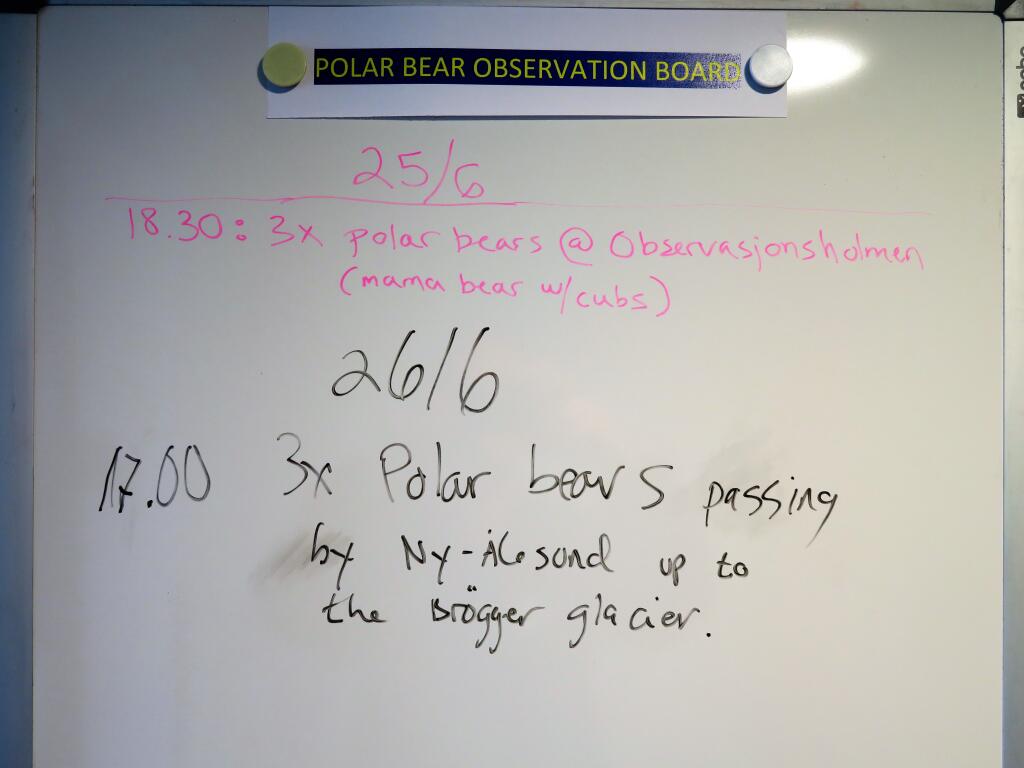 POLAR BEAR OBSERVATION BOARD
25/6
18.30: 3x polar bears @ Observasjonsholmen
(mama bear w/cubs)
26/6
17.00 3x Polar bears passing
by Ny-Ålesund up to
the Brögger glacier.